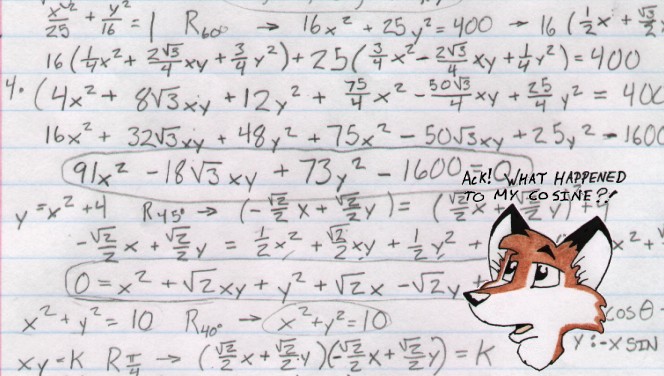 x²/25 + y²/16 = 1 R60° → 16x² + 25y² = 400 → 16(½x + √3/2
16(¼x² + 2√3/4 xy + ¾y²) + 25(¾x² - 2√3/4 xy + ¼y²) = 400
4·(4x² + 8√3xy + 12y² + 75/4 x² - 50√3/4 xy + 25/4 y² = 400
16x² + 32√3xy + 48y² + 75x² - 50√3xy + 25y² - 1600
91x² - 18√3 xy + 73y² - 1600 = 0
Ack! WHAT HAPPENED
TO MY COSINE?!
y = x² + 4 R45° → (-√2/2 x + √2/2 y) = (√2/2 x + √2/2 y)² + 4
-√2/2 x + √2/2 y = ½x² + √2/2 xy + ½y² +
0 = x² + √2xy + y² + √2x - √2y +
x² + y² = 10 R40° → x² + y² = 10 cosθ
xy = K Rπ/4 → (√2/2 x + √2/2 y)(-√2/2 x + √2/2 y) = K y = -x SIN